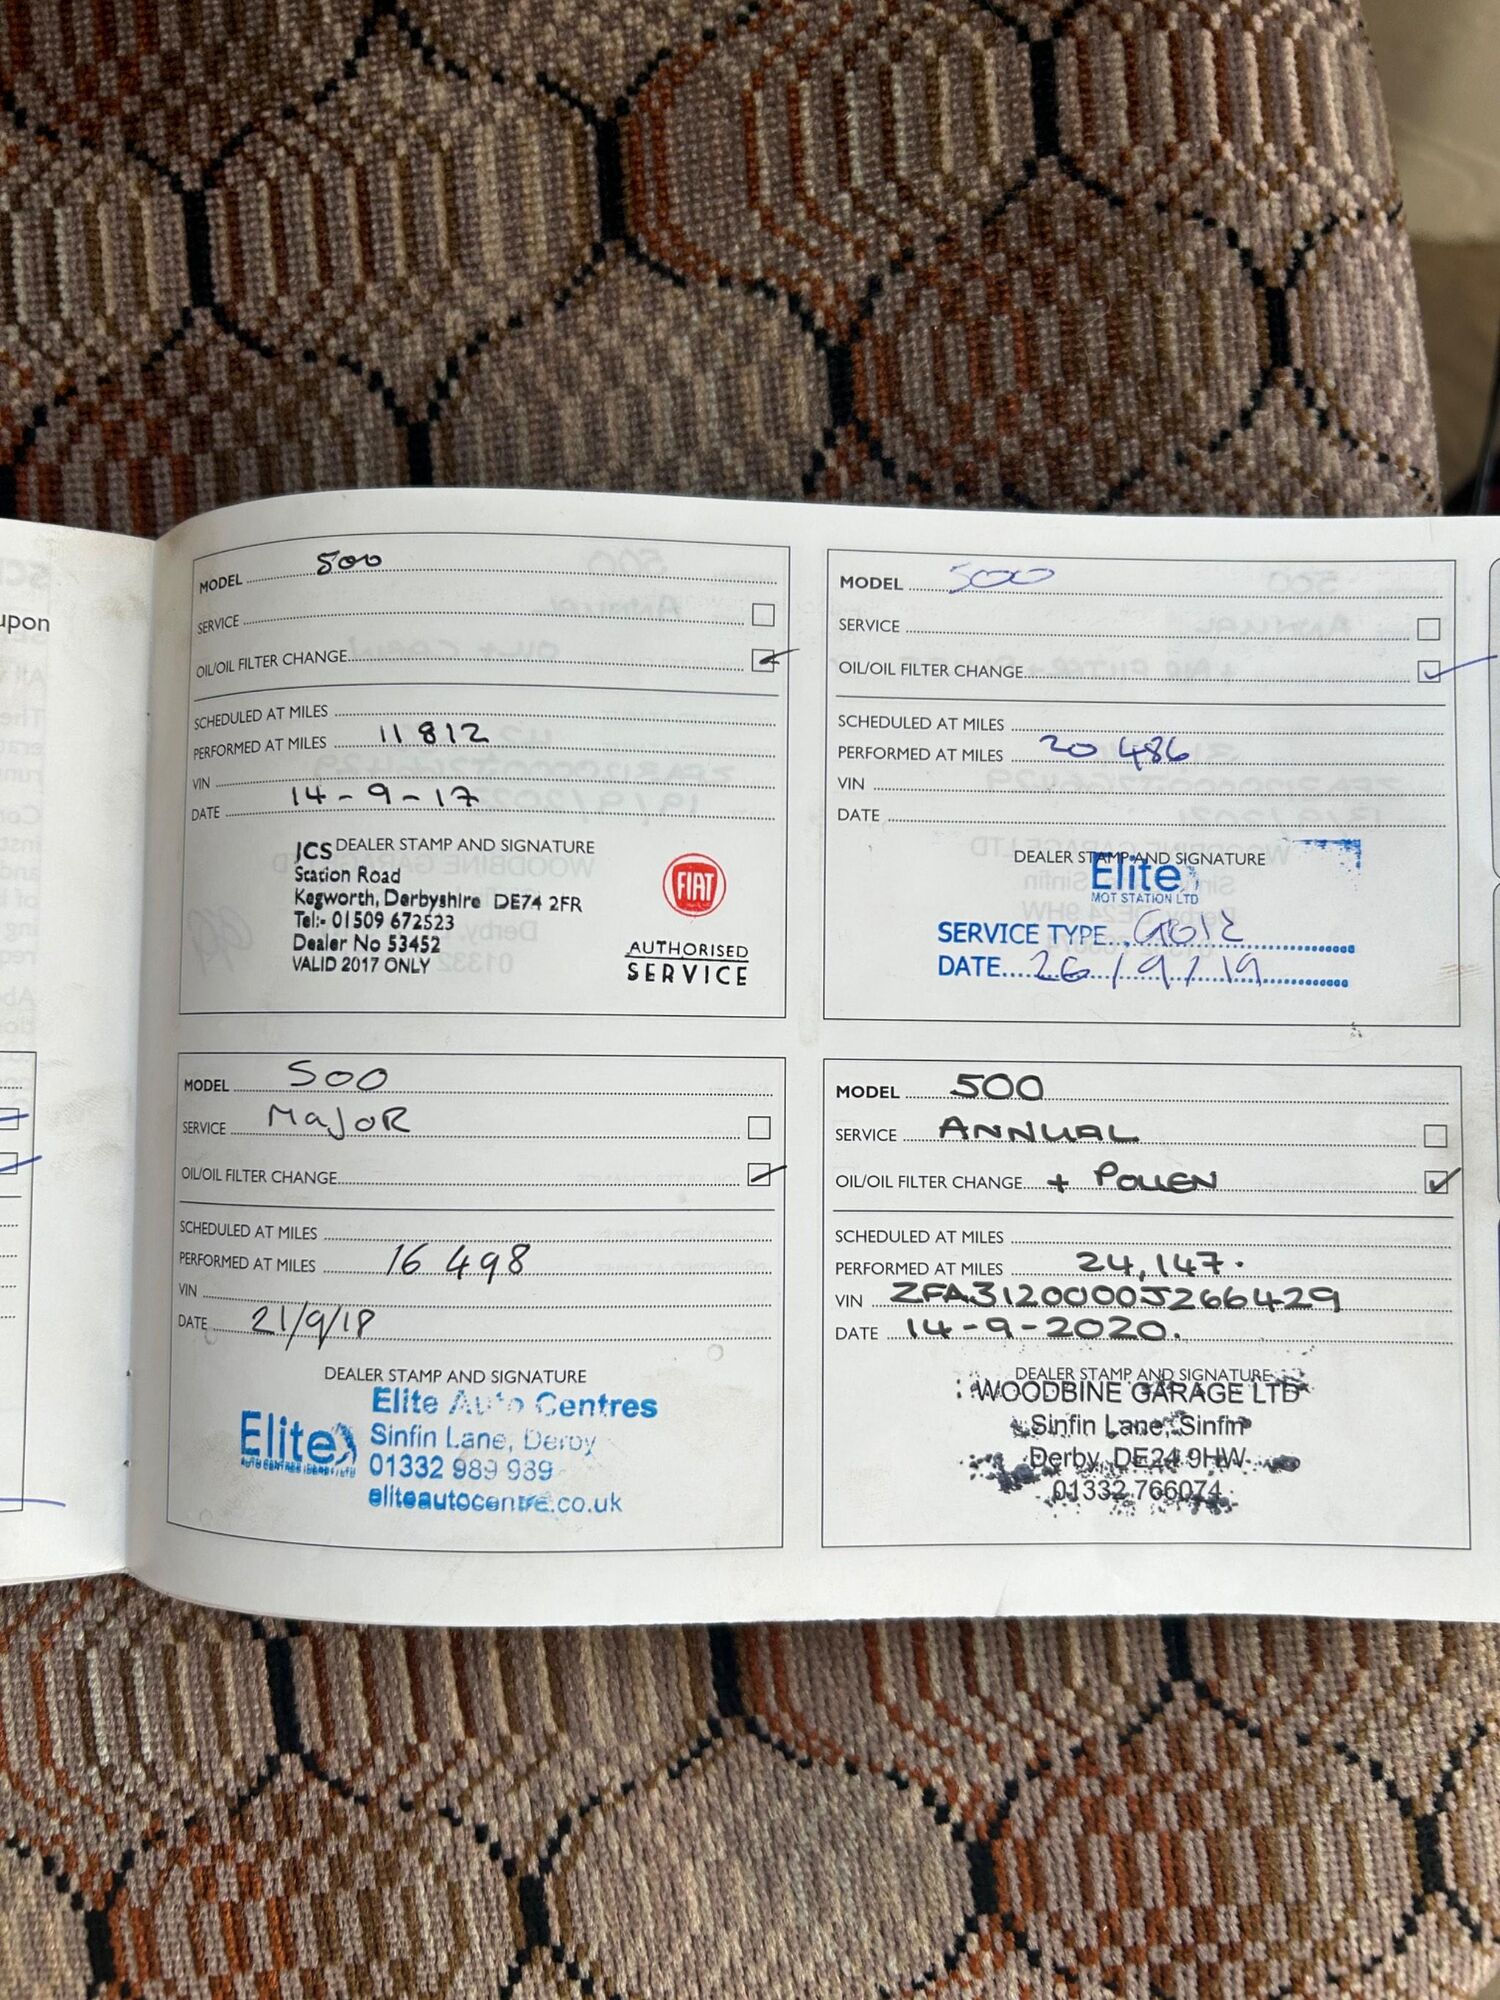 upon
MODEL 500
SERVICE
OIL/OIL FILTER CHANGE
SCHEDULED AT MILES
PERFORMED AT MILES 11812
VIN
DATE 14-9-17
DEALER STAMP AND SIGNATURE
JCS
Station Road
Kegworth, Derbyshire DE74 2FR
Tel:- 01509 672523
Dealer No 53452
VALID 2017 ONLY
FIAT
AUTHORISED
SERVICE
MODEL 500
SERVICE
OIL/OIL FILTER CHANGE
SCHEDULED AT MILES
PERFORMED AT MILES 20 486
VIN
DATE
DEALER STAMP AND SIGNATURE
Elite
MOT STATION LTD
SERVICE TYPE
DATE 26/9/19
MODEL 500
SERVICE MaJoR
OIL/OIL FILTER CHANGE
SCHEDULED AT MILES
PERFORMED AT MILES 16 498
VIN
DATE 21/9/18
DEALER STAMP AND SIGNATURE
Elite
Elite Auto Centres
Sinfin Lane, Derby
01332 989 989
eliteautocentre.co.uk
MODEL 500
SERVICE ANNUAL
OIL/OIL FILTER CHANGE + POLLEN
SCHEDULED AT MILES
PERFORMED AT MILES 24,147.
VIN ZFA3120000J266429
DATE 14-9-2020.
DEALER STAMP AND SIGNATURE
WOODBINE GARAGE LTD
Sinfin Lane, Sinfin
Derby, DE24 9HW
01332 766074